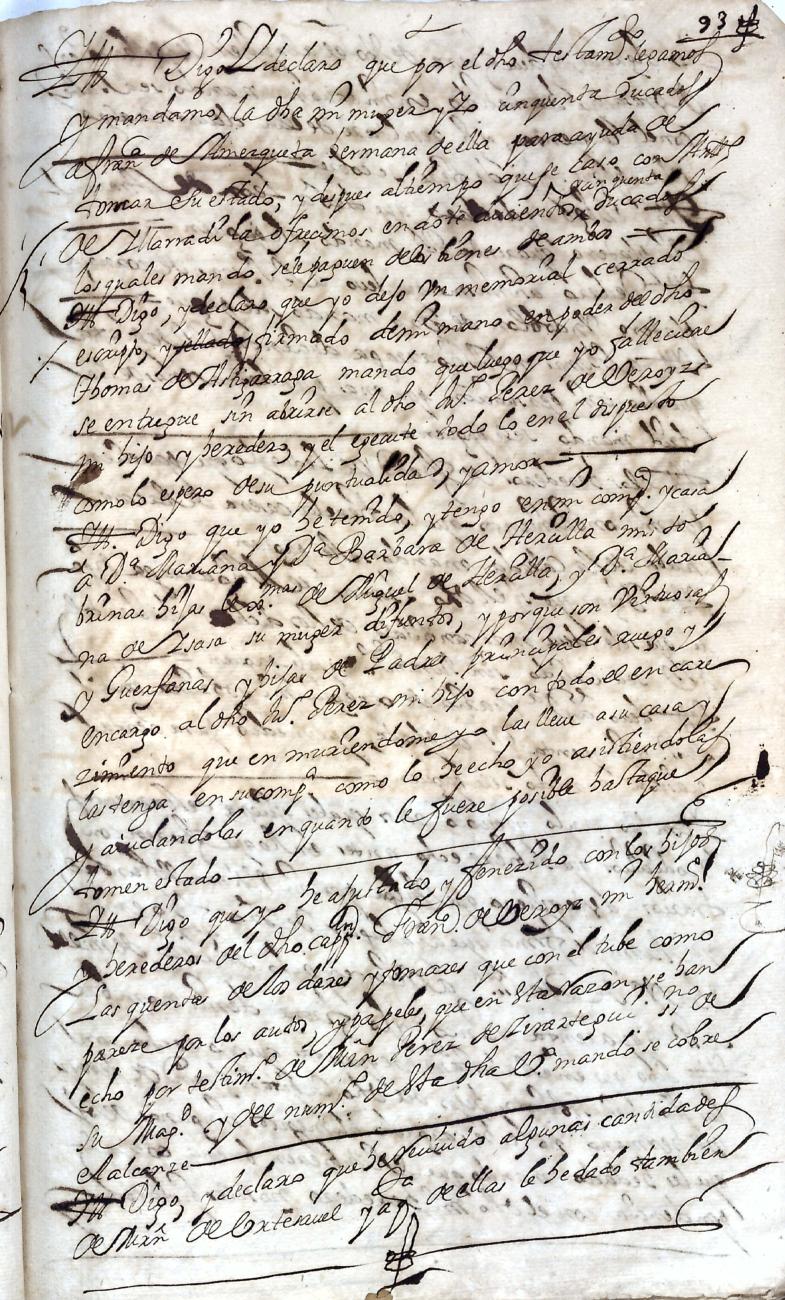 93
Ytt Digo y declaro que por el dho testamto legamos
y mandamos la dha mi muger y Yo cinquenta ducados
a Franca de Amezqueta hermana de ella para ayuda de
tomar su estado, y despues al tiempo que se caso con
cinquenta
de la ofrecimos en dote ducados
los quales mando se le paguen de los bienes de ambos
Ytt Digo, y declaro que yo dejo un memorial cerrado
escripto, y sellado, y firmado de mi mano en poder del dho
Thomas de Astigarraga mando que luego que yo falleciere
se entregue sin abrirse al dho Ju.o Perez de Veroyz
mi hijo y heredero, y el egecute todo lo en el dispuesto
como lo espero de su puntualidad, y amor
Ytt. Digo que yo he tenido, y tengo en mi comp.a y casa
a D.a Mariana y D.a Barbara de Heralla mis so
brinas hijas lexmas de Miguel de Heralla, y D.a Maria
na de Isasa su muger difuntos, y porque son virtuosas
y Guerfanas y hijas de Padres principales ruego y
encargo al dho Ju.o Perez mi hijo con todo el encare
zimiento que en muriendome yo las lleve a su casa y
las tenga en su comp.a como lo he echo yo asistiendolas
y aiudandolas en quanto le fuere posible hasta que
tomen estado
Ytt Digo que yo he ajustado, y fenezido con los hijos
y herederos del dho capp.n Fran.co de Veroyz mi herm.o
Las quentas de los dares y tomares que con el tube como
pareze por los autos, y papeles, que en esta razon se han
echo por testim.o de Min Perez de ss.no de
su Mag.d y del num.o de esta dha V.a mando se cobre
el alcanze
Ytt Digo, y declaro que he revivido algunas cantidades
de Min de y a q.ta de ellas le he dado tambien